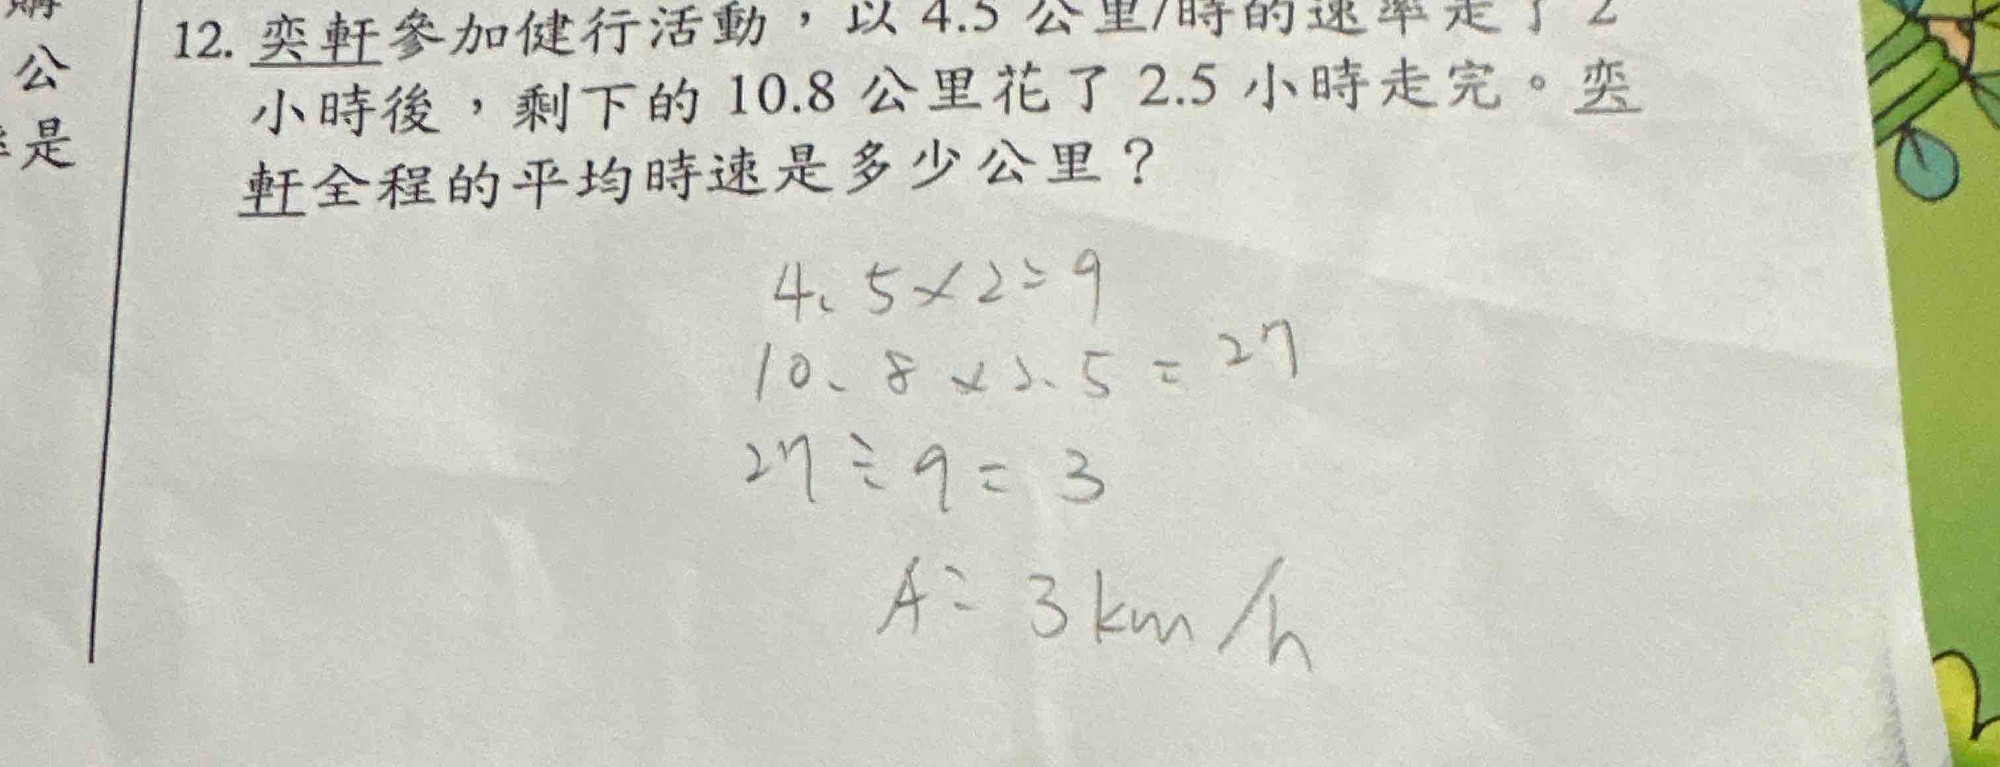 公
是
12. 奕軒參加健行活動，以 4.5 公里/時的速率走了 2
小時後，剩下的 10.8 公里花了 2.5 小時走完。奕
軒全程的平均時速是多少公里？
4.5×2=9
10.8×2.5=27
27÷9=3
A= 3km/h